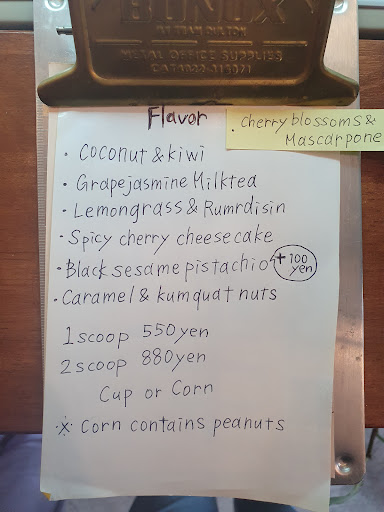 BONOX
METAL OFFICE SUPPLIES
Flavor
・cherry blossoms &
Mascarpone
・Coconut & kiwi
・Grapejasmine Milktea
・Lemongrass & Rumrdisin
・Spicy cherry cheesecake
・Black sesame pistachio +100 yen
・Caramel & kumquat nuts
1 scoop 550yen
2 scoop 880yen
Cup or Corn
※ Corn contains peanuts